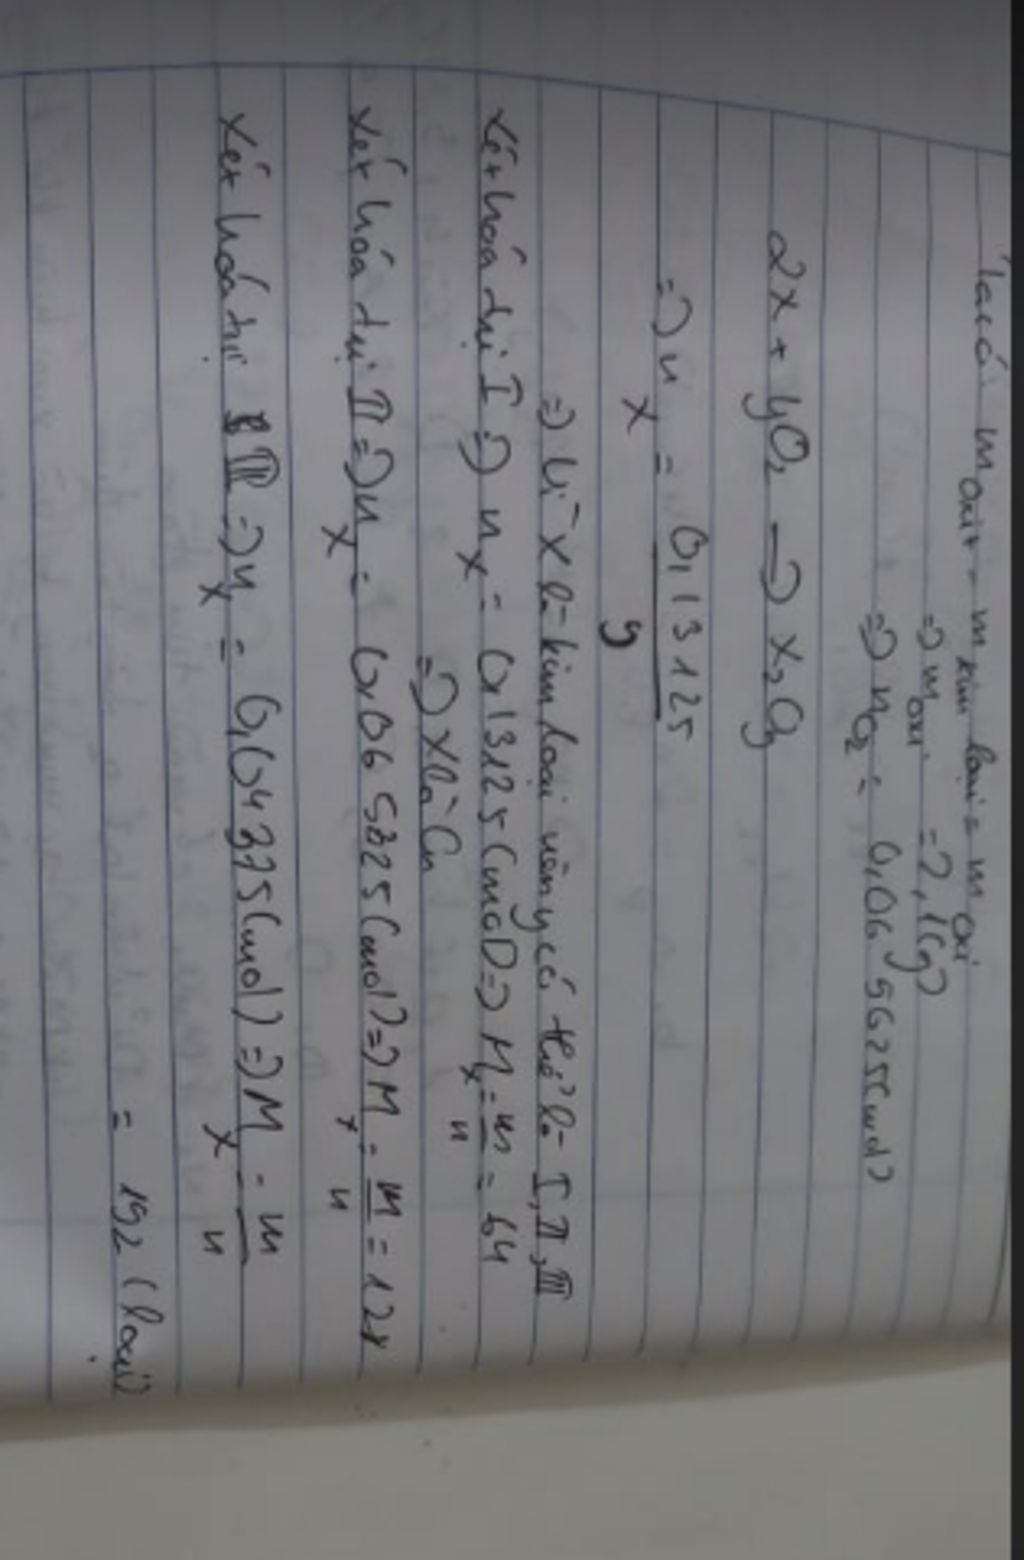 Ta có: m oxit - m kim loại = m oxi
=> m oxi = 2,1(g)
=> nO2 = 0,065625(mol)
2x + yO2 → x2Oy
=> nx = 0,13125 / y
=> Vì x là kim loại nên y có thể là I, II, III
Xét hoá trị I => nx = 0,13125(mol) => Mx = m/n = 64
=> x là Cu
Xét hóa trị II => nx = (mol) => Mx = m/n = 128
Xét hoá trị III => nx = 0,04375(mol) => Mx = m/n
= 192 (loại)